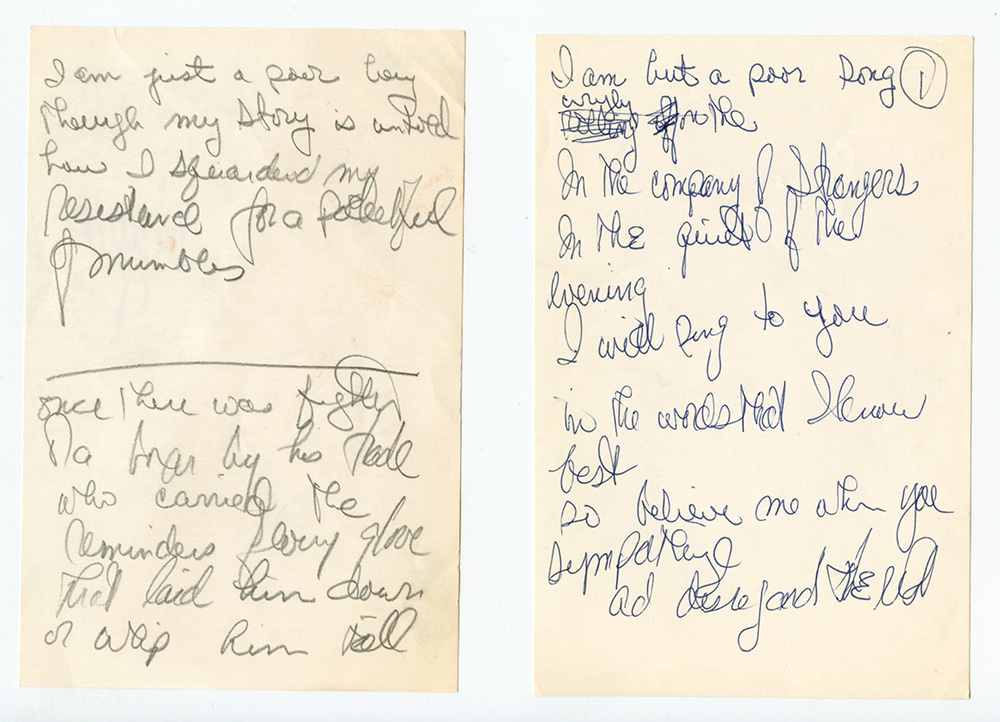 I am just a poor boy
though my story is untold
how I squandered my
resistance for a pocketful
of mumbles
once there was fighter
a boxer by his trade
who carried the
reminders of every glove
that laid him down
or whip him till
I am but a poor song
1
wryly
on the
In the company of strangers
In the quiet of the
evening
I will sing to you
in the words that I know
best
so believe me when you
sympathize
ad disregard the rest